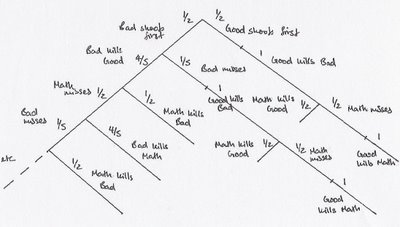 1/2
1/2
Bad shoots
first
Good shoots first
Bad kills
Good
4/5
1/5
Bad misses
1
Good kills Bad
Math
misses
1/2
1/2
Math kills
Bad
1
Good kills
Bad
Math kills
Good
1/2
1/2
Math misses
Bad
misses
1/5
4/5
Bad kills
Math
Math kills
Good
1/2
1/2
Math
misses
1
Good
kills Math
etc
1/2
Math kills
Bad
1
Good
kills Math